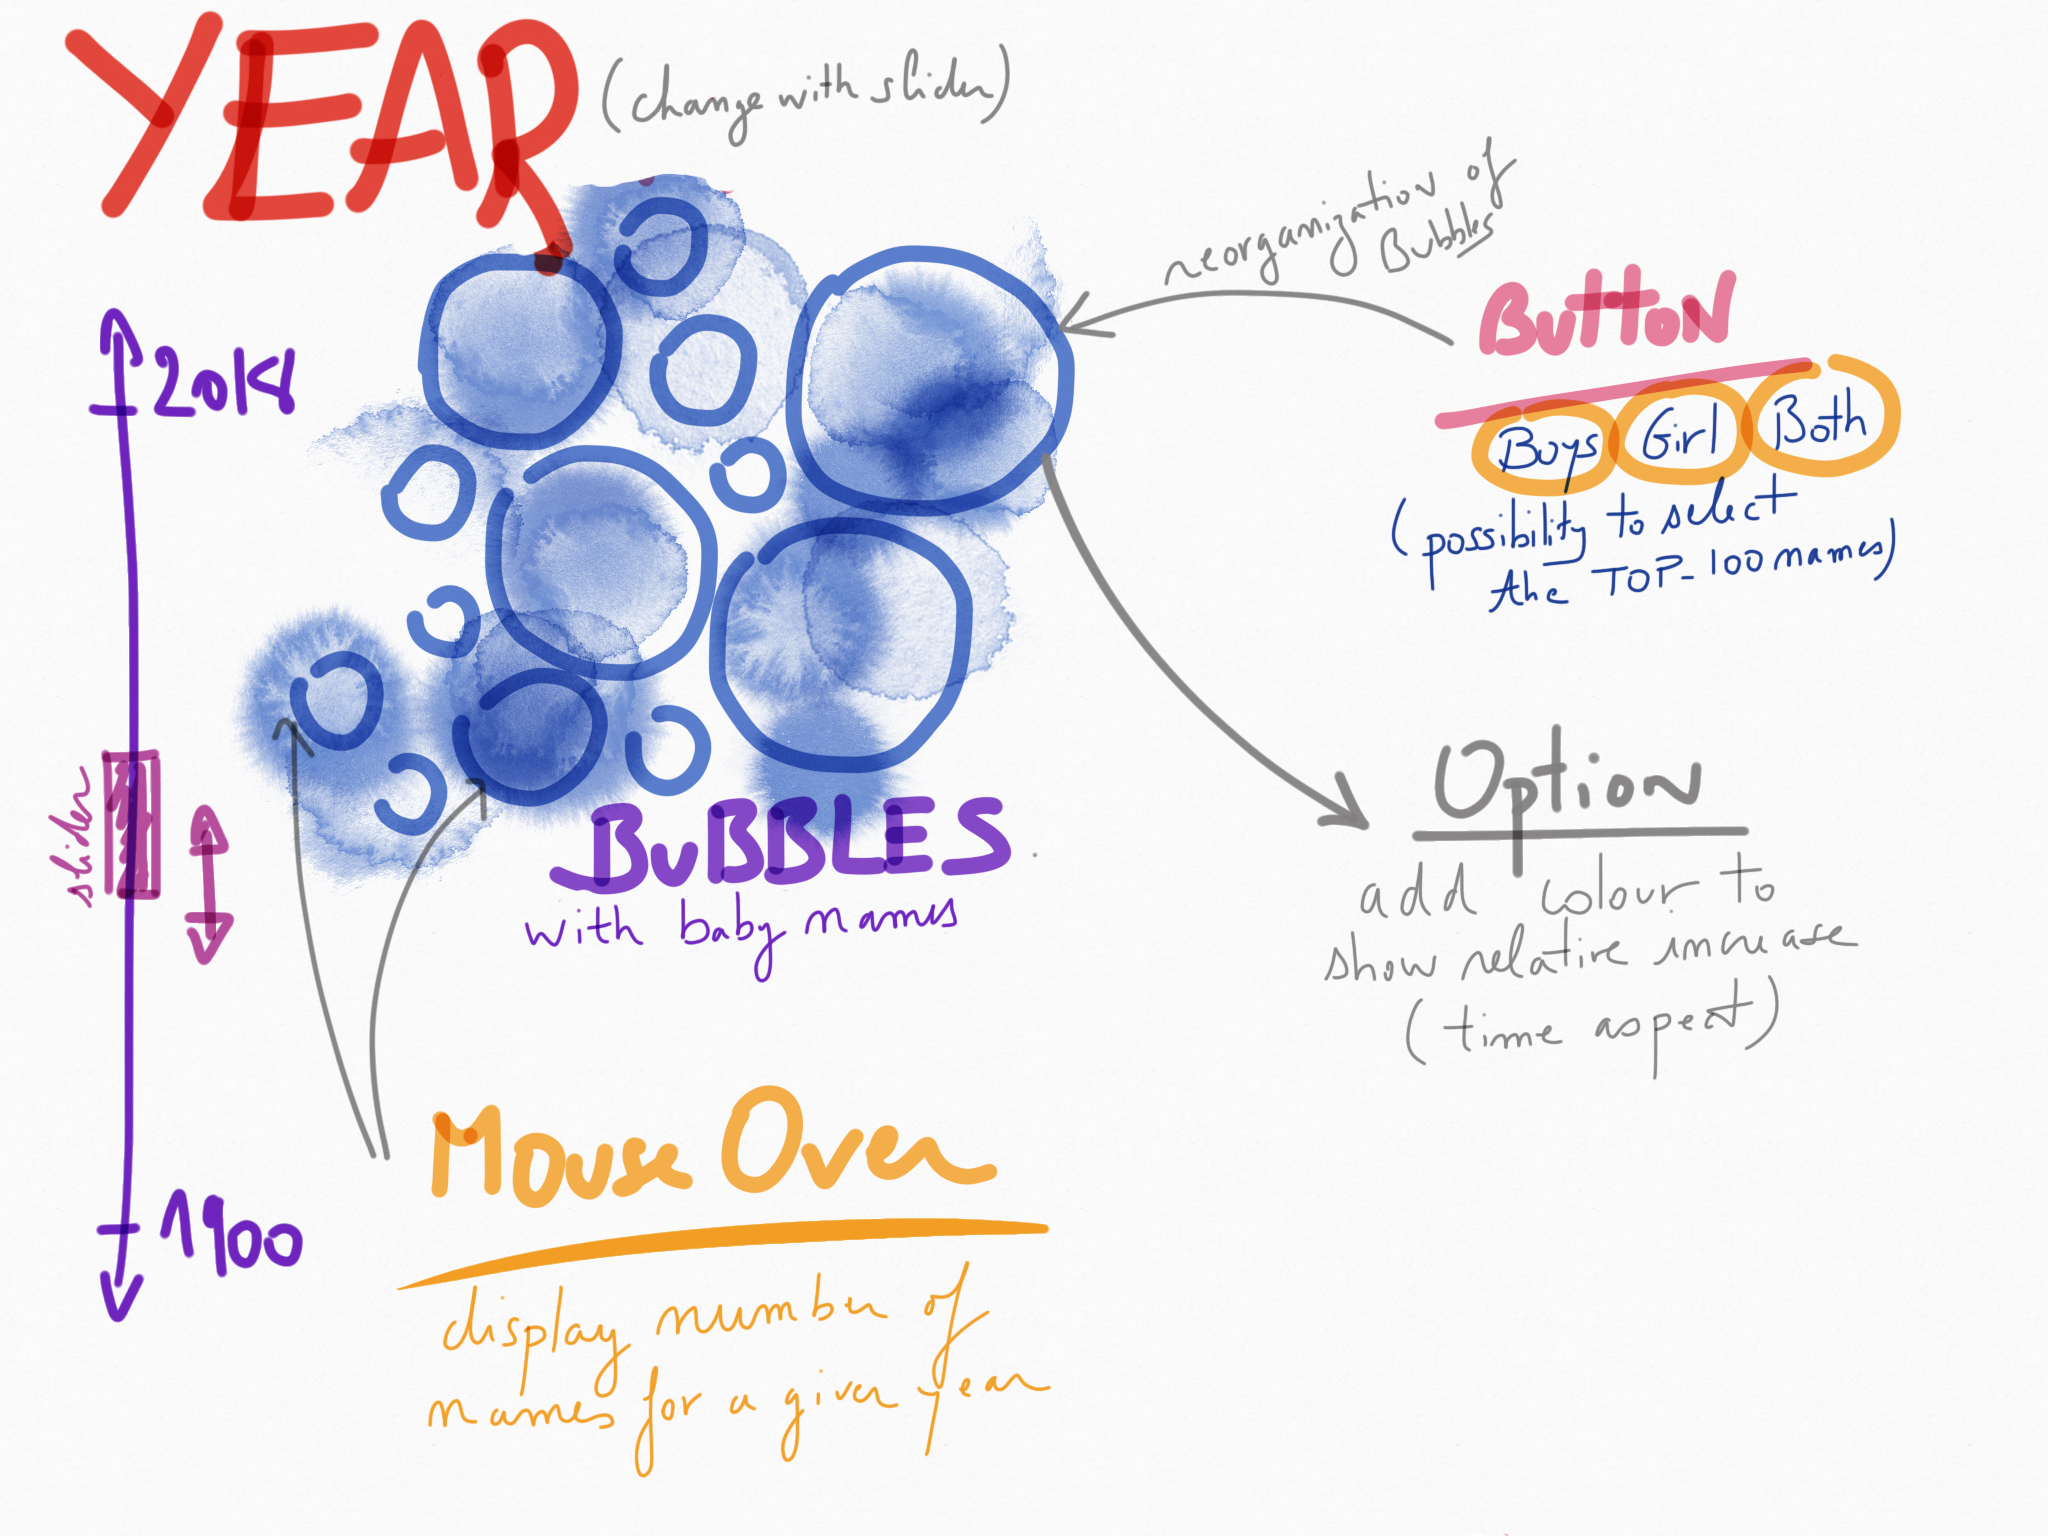 YEAR
(change with slider)
reorganization of
Bubbles
BUTTON
Boys Girl Both
(possibility to select
the TOP-100 names)
2014
slider
BUBBLES
with baby names
Option
add colour to
show relative increase
(time aspect)
Mouse Over
1900
display number of
names for a given year